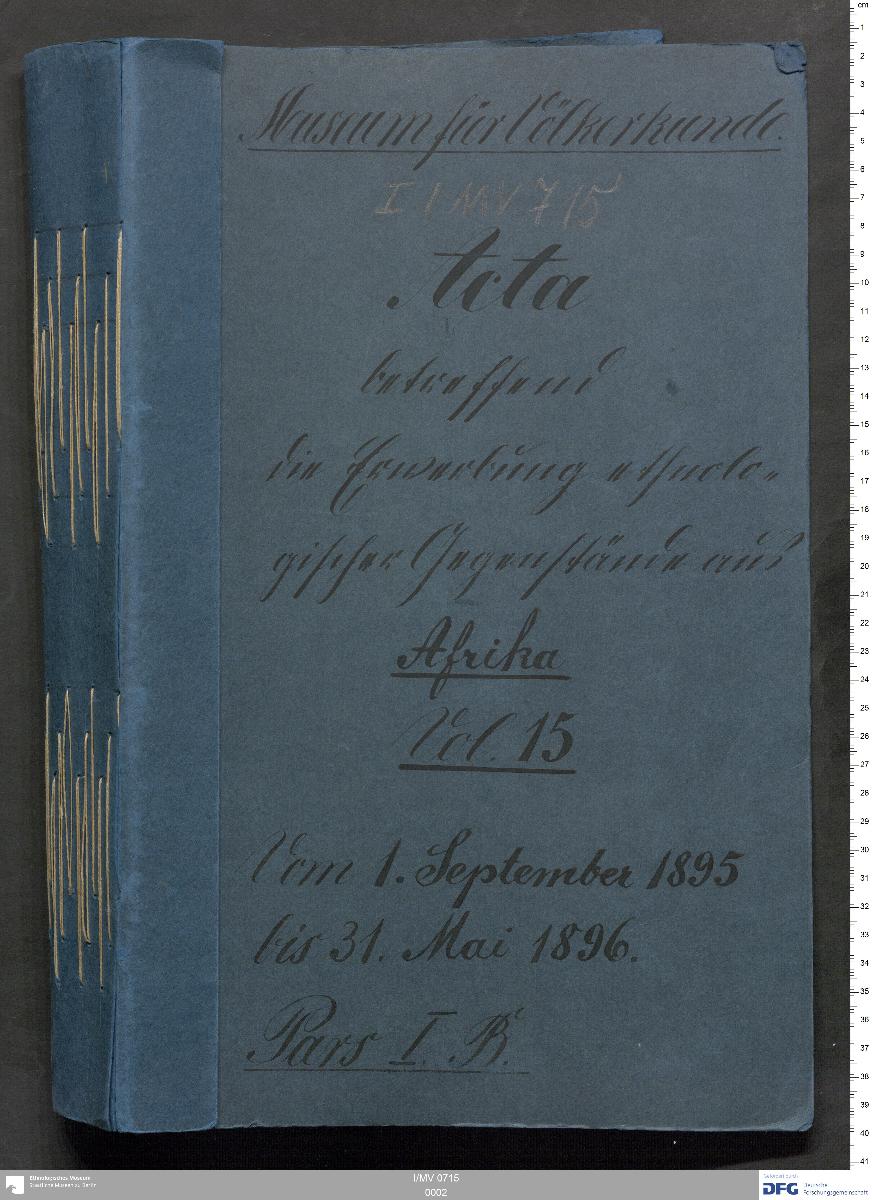 Museum für Völkerkunde.
I / MV 715
Acta
betreffend
die Erwerbung ethnolo-
gischer Gegenstände aus
Afrika
Vol. 15
Vom 1. September 1895
bis 31. Mai 1896.
Pars I. B.
cm
1
2
3
4
5
6
7
8
9
10
11
12
13
14
15
16
17
18
19
20
21
22
23
24
25
26
27
28
29
30
31
32
33
34
35
36
37
38
39
40
41
Ethnologisches Museum
Staatliche Museen zu Berlin
I/MV 0715
0002
Gefördert durch
DFG Deutsche
Forschungsgemeinschaft